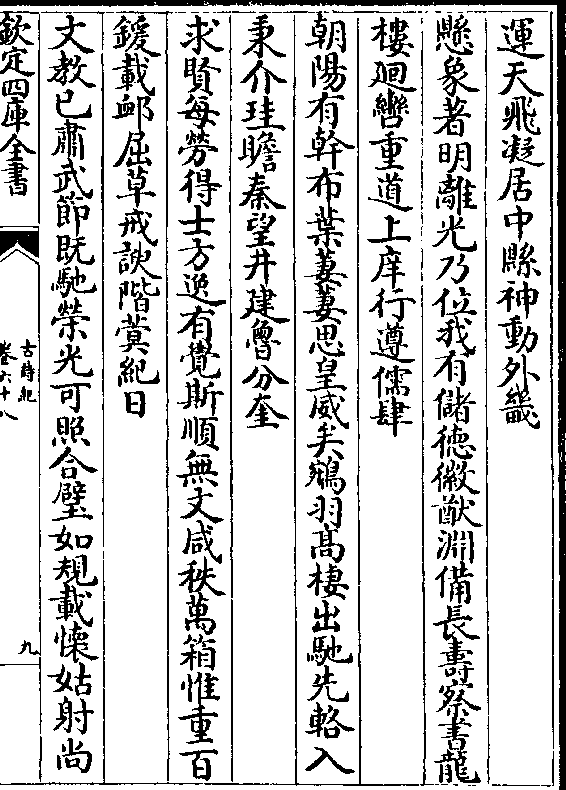 運天飛凝居中縣神動外畿
懸象著明離光乃位我有儲德徽猷淵備長壽察書龍
樓迴轡重道上庠行遵儒肆
朝陽有幹布葉萋萋思皇威矣鵷羽髙棲出馳先輅入
秉介珪瞻秦望井建魯分奎
求賢每勞得士方逸有覺斯順無文咸秩萬箱惟重百
鍰載䘏屈草戒諛階蓂紀日
文教已肅武節既馳榮光可照合璧如規載懐姑射尚
欽定四庫全書
古詩紀
卷六十八
九